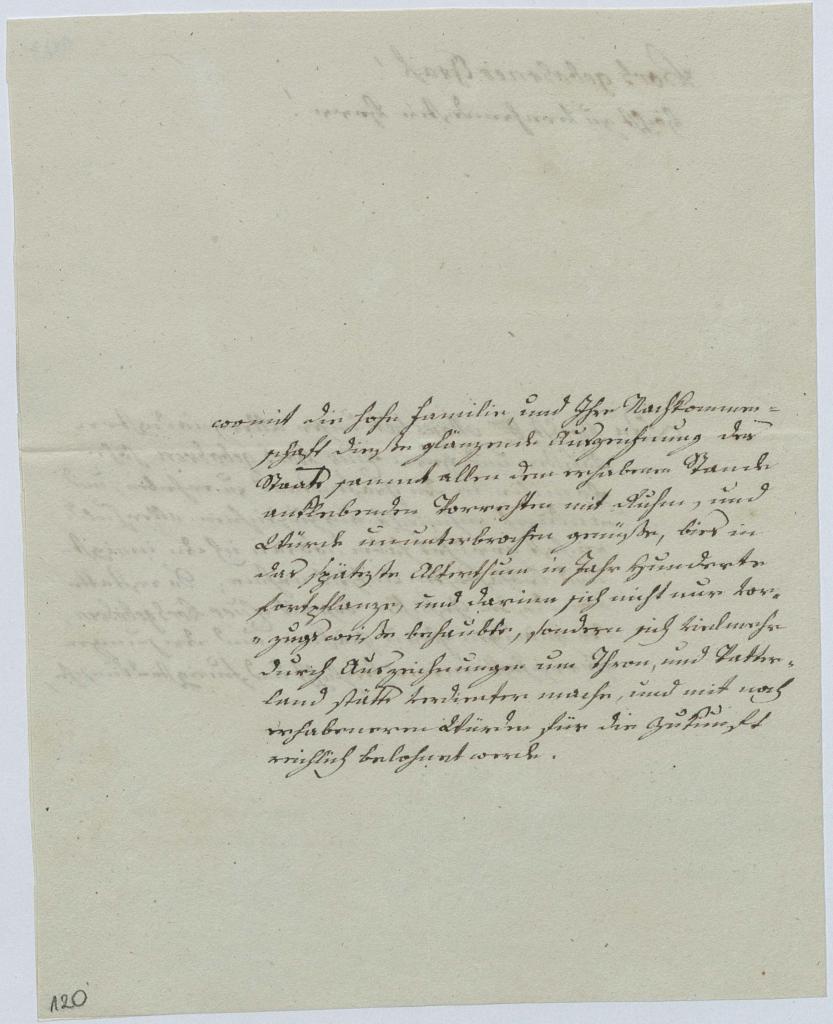 womit die hohe Familie, und Ihre Nachkommen=
schaft dieße glänzende Auszeichnung des
Staats sammt allen dem erhabenen Stande
anklebenden Vorrechten mit Ruhm, und
Würde ununterbrochen genüße, bies in
das späteste Alterthum in Jahr Hunderte
fortpflanze, und darinn sich nicht nur vor=
=zugsweiße behaubte, sondern sich vielmehr
durch Auszeichnungen um Thron, und Vatter=
land stätts verdienter mache, und mit noch
erhabeneren Würden für die Zukunft
reichlich belohnet werde.
120